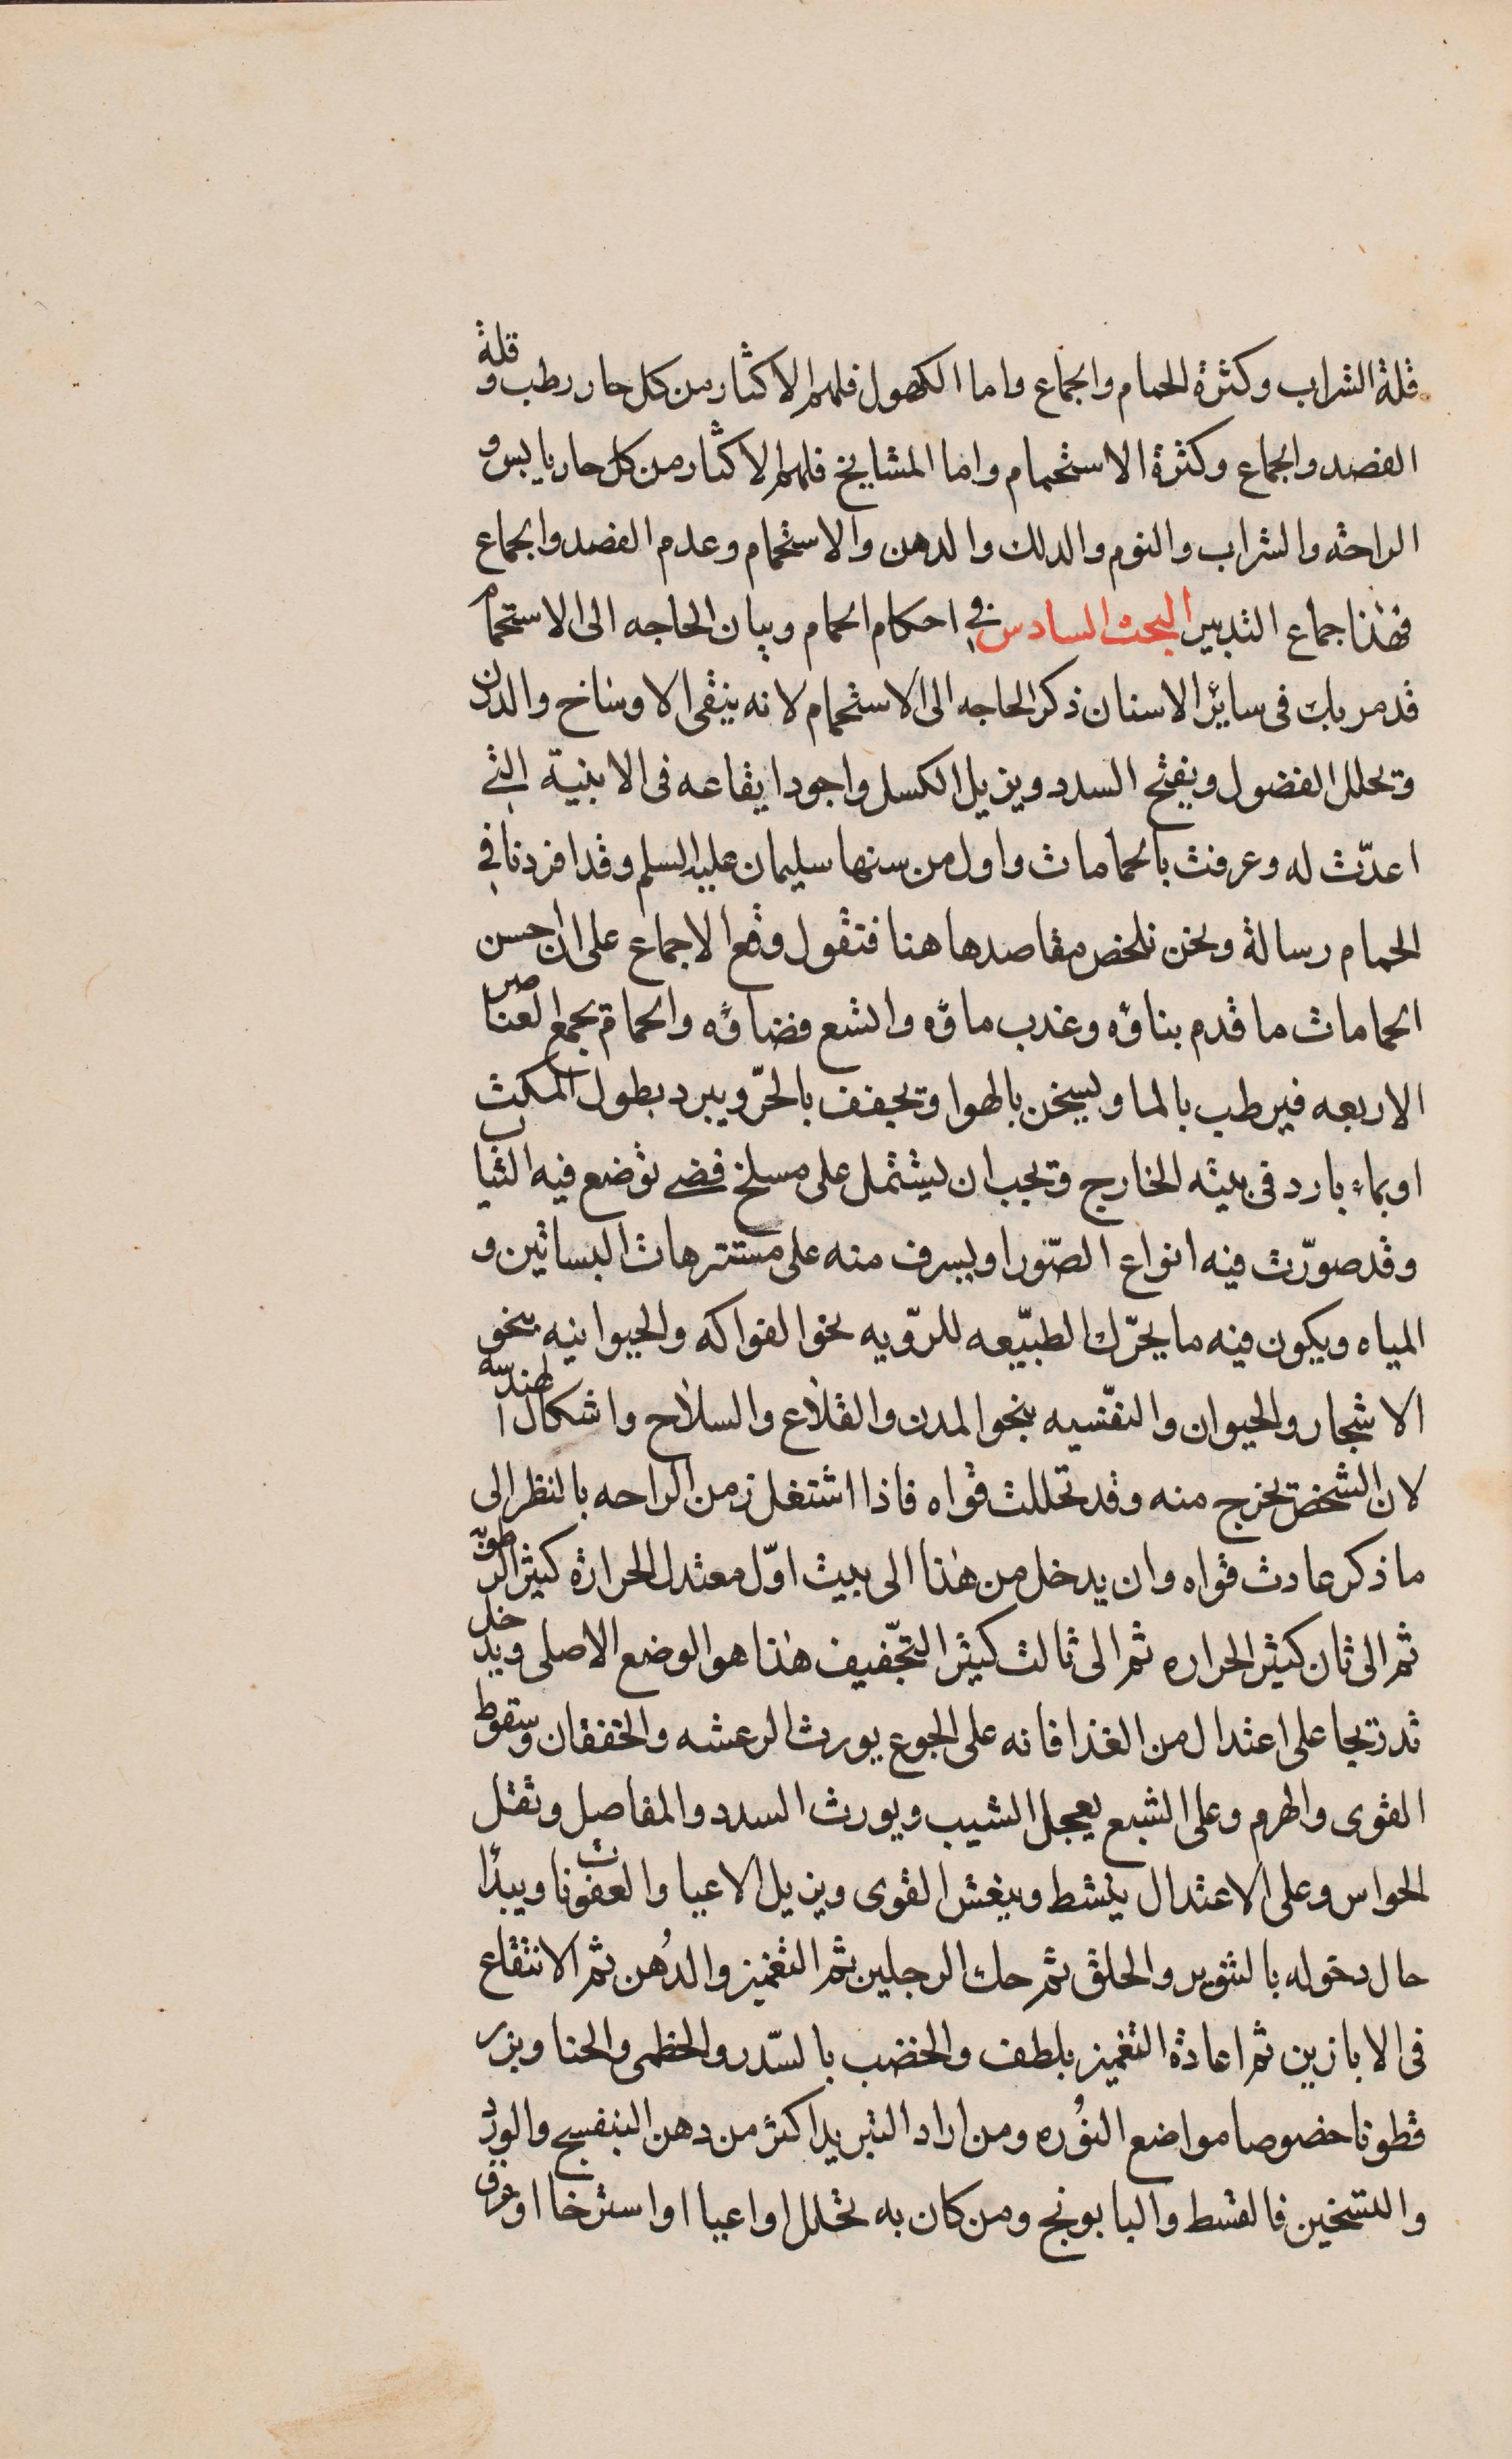 قلة الشراب وكثرة الحمام والجماع واما الكهول فلهم الاكثار من كل حار رطب وقلة
الفصد والجماع وكثرة الاستحمام واما المشايخ فلهم الاكثار من كل حار يابس و
الراحته والشراب والنوم والدلك والدهن والاستحمام وعدم الفصد والجماع
فهٰذا جماع التدبير البحث السادس في احكام الحمام وبيان الحاجه الى الاستحمام
قد مر بك فى سائر الاسنان ذكر الحاجه الى الاستحمام لانه ينقى الاوساخ والدرن
ويحلل الفضول ويفتح السدد ويزيل الكسل واجود ايقاعه فى الابنية التي
اعدّت له وعرفت بالحمامات واول من سنها سليمان عليه السلم وقد افردنا في
الحمام رسالة ونحن نلخص مقاصدها هنا فتقول وقع الاجماع على ان احسن
الحمامات ما قدم بناؤه وعذب ماؤه واتسع فضاؤه والحمام يجمع العناصر
الاربعه فيرطب بالما ويسخن بالهوا ويجفف بالحرّ ويبرد بطول المكث
او بماء بارد فى بيته الخارج ويجب ان يشتمل على مسلخ فضى توضع فيه الثياب
وقد صوّرت فيه انواع الصّور او يسرف منه على مستنزهات البساتين و
المياه ويكون فيه ما يحرّك الطبيّعه للرّويه نحو الفواكه والحيوانيه بنحو
الاشجار والحيوان والنفّسيه بنحو المدن والقلاع والسلاح واشكال الهندسه
لان الشخص يخرج منه وقد تحللت قواه فاذا اشتغل زمن الراحه بالنظر الى
ما ذكر عادت قواه وان يدخل من هٰذا الى بيت اوّل معتدل الحرارة كثير الرطوبه
ثم الى ثان كثير الحراره ثم الى ثالث كثير التجّفيف هٰذا هو الوضع الاصلى ويدخل
تدريجا على اعتدال من الغذا فانه على الجوع يورث الرعشه والخفقان وسقوط
القوى والهرم وعلى الشبع يعجل الشيب ويورث السدد والمفاصل وثقل
الحواس وعلى الاعتدال ينشط وينعش القوى ويزيل الاعيا والعفونات ويبدأ
حال دخوله بالتنوير والحلق ثم حك الرجلين ثم التغميز والدُهن ثم الانتقاع
فى الابازين ثم اعادة التغميز بلطف والخضب بالسّدر والخطمى والحنا وبزر
قطونا خصوصا مواضع النوُره ومن اراد التبريد اكثر من دهن البنفسج والورد
والتسخين فالقسط والبابونج ومن كان به تخلل او اعيا او استرخا او عرق